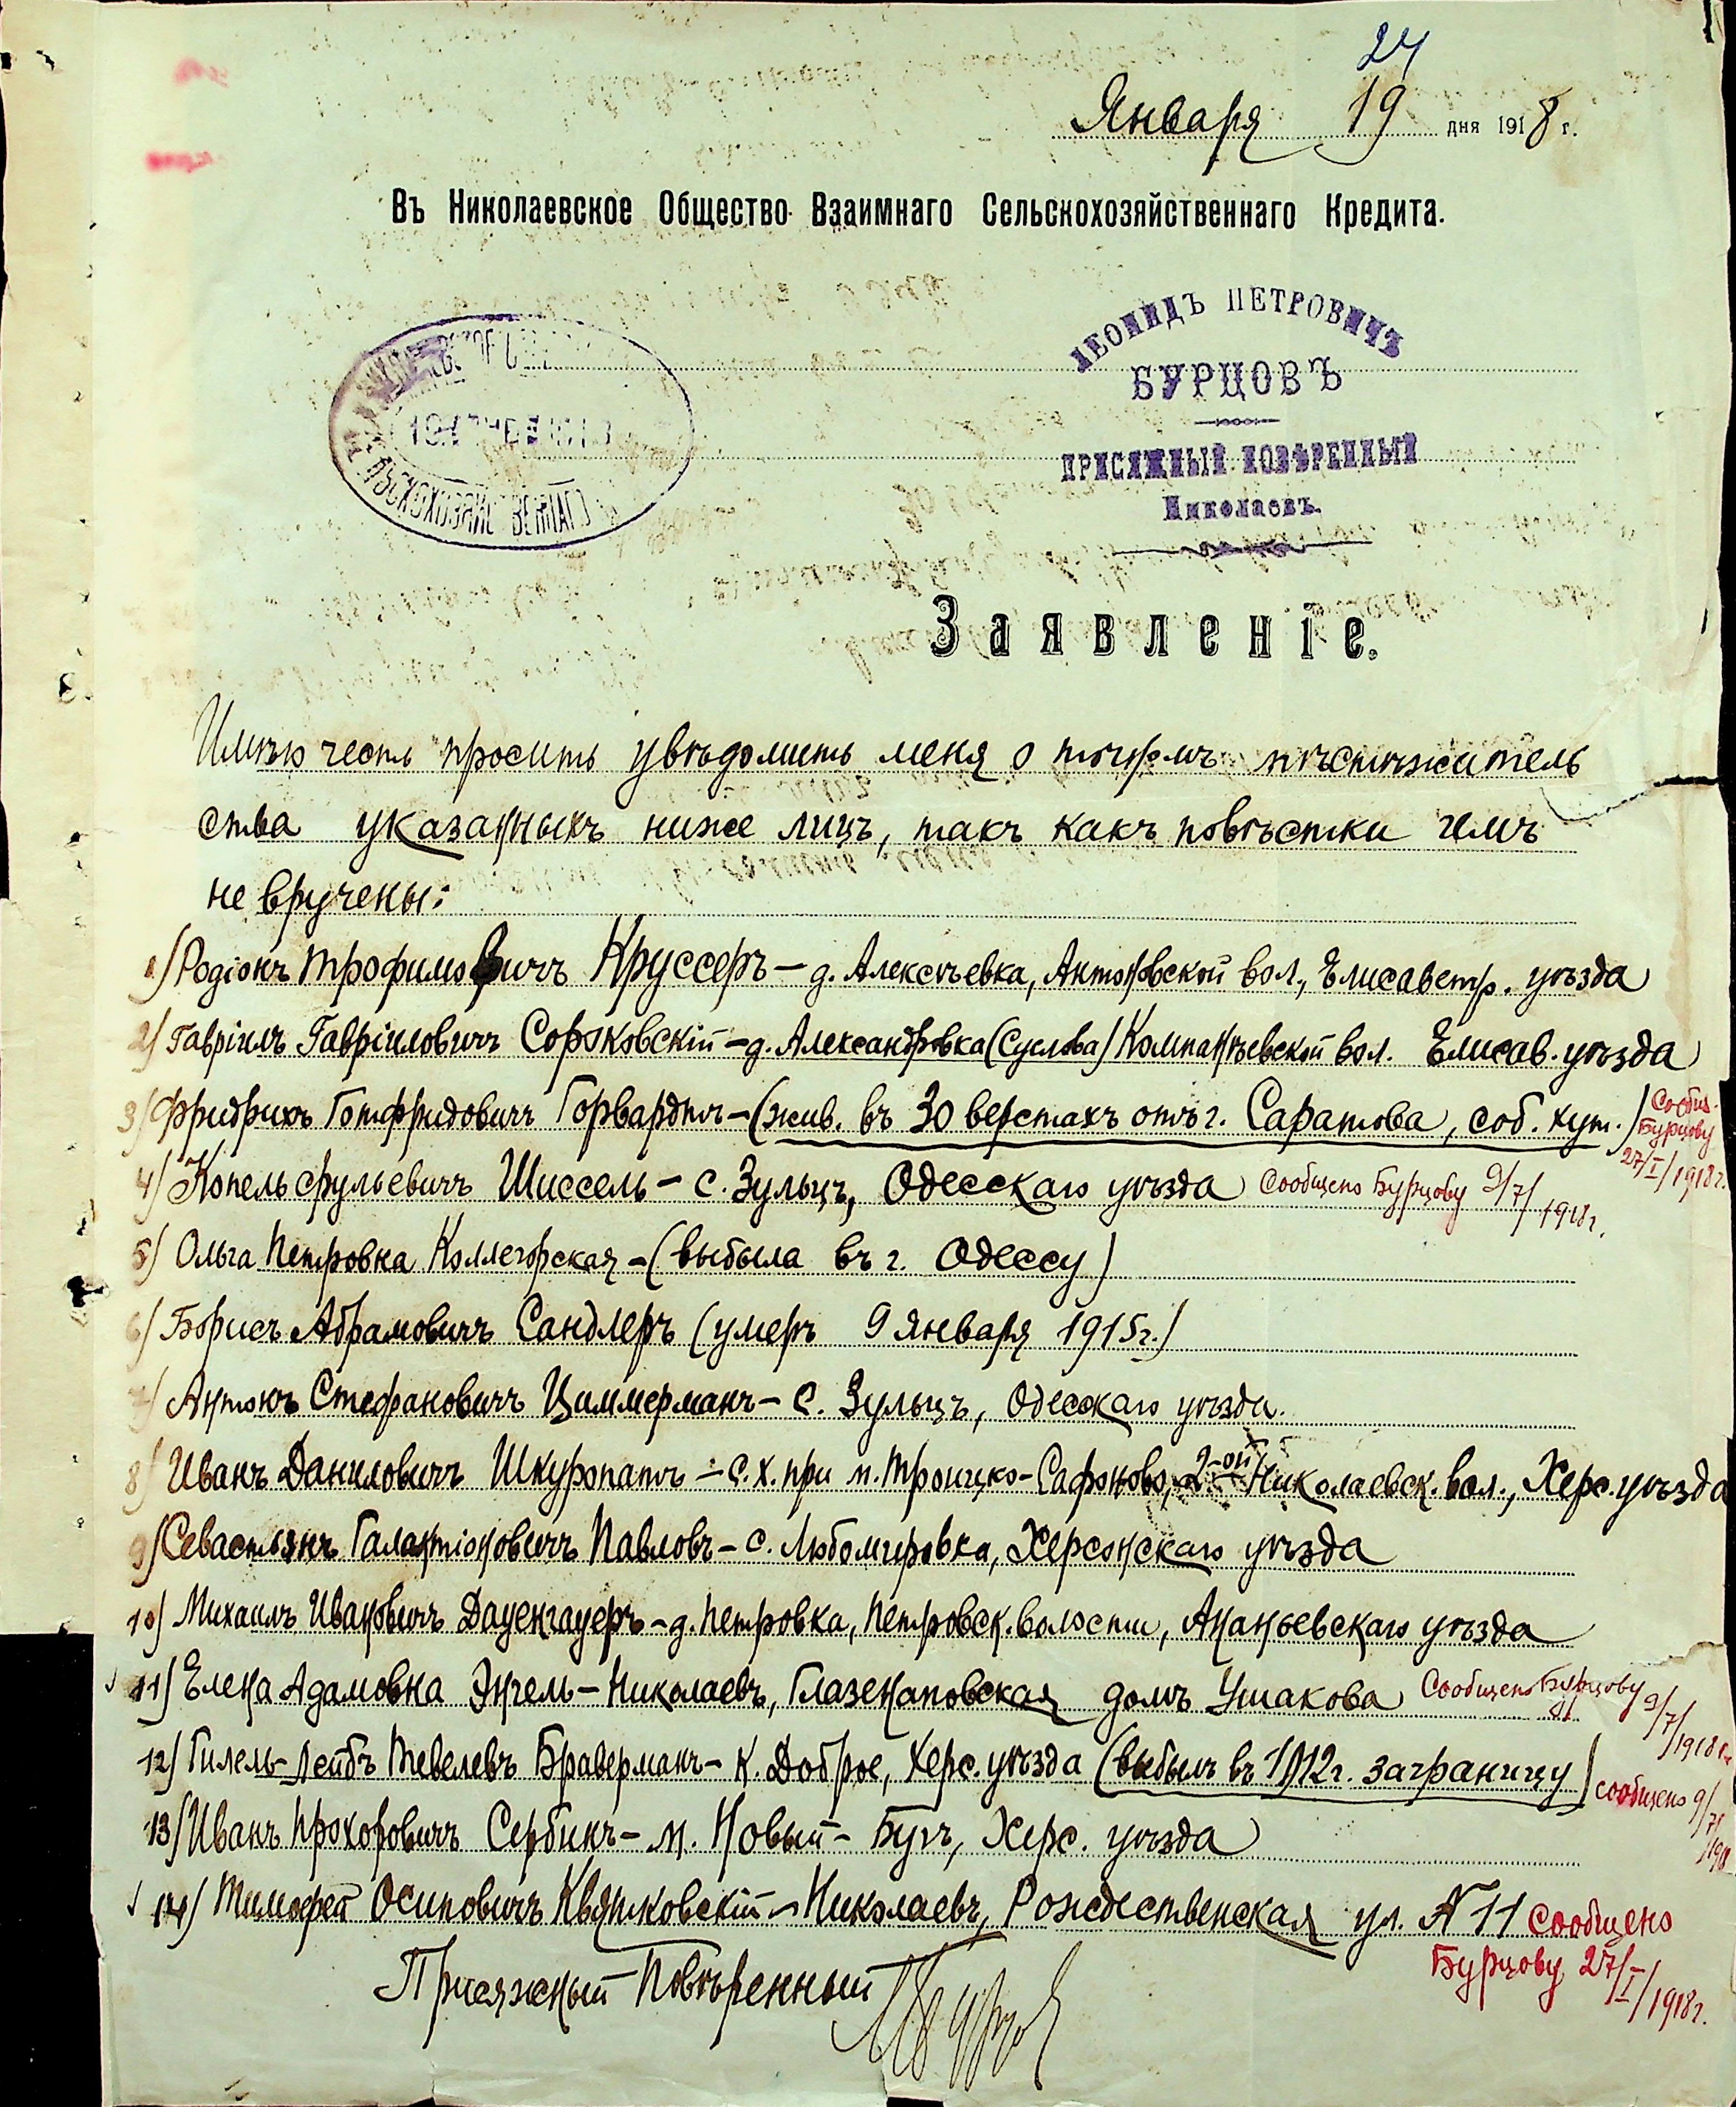 24
Января 19 дня 1918 г.
Въ Николаевское Общество Взаимнаго Сельскохозяйственнаго Кредита.
ЛЕОНИДЪ ПЕТРОВИЧЪ
БУРЦОВЪ
ПРИСЯЖНЫЙ ПОВѢРЕННЫЙ
Николаевъ.
Заявленіе.
Имѣю честь просить увѣдомить меня о точномъ мѣстожитель
ства указанныхъ ниже лицъ, такъ какъ повѣстки имъ
не вручены:
1) Родіонъ Трофимовичъ Круссеръ – д. Алексѣевка, Антоновской вол., Елисаветр. уѣзда
2) Гавріилъ Гавріиловичъ Сороковскій – д. Александровка (Суслова) Компанѣевской вол. Елисав. уѣзда
3) Фридрихъ Готфридовичъ Горвардтъ – (жив. въ 30 верстахъ отъ г. Саратова, соб. хут.) Сообщ.
Бурцову
27/I/1918г.
4) Копель Срульевичъ Шиссель – с. Зульцъ, Одесскаго уѣзда Сообщено Бурцову 9/7/1918г.
5) Ольга Петровна Коллегорская – (выбыла въ г. Одессу)
6) Борисъ Абрамовичъ Сандлеръ (умеръ 9 января 1915г.)
7) Антонъ Стефановичъ Циммерманъ – с. Зульцъ, Одесскаго уѣзда.
8) Иванъ Даниловичъ Шкуропатъ – с. х. при м. Троицко-Сафоново, 2-ой Николаевск. вол., Херс. уѣзда
9) Севастьянъ Галактіоновичъ Павловъ – с. Любомировка, Херсонскаго уѣзда
10) Михаилъ Ивановичъ Дауенгауеръ – д. Петровка, Петровск. волости, Ананьевскаго уѣзда
11) Елена Адамовна Энгель – Николаевъ, Глазенаповская домъ Ушакова Сообщено Бурцову 9/7/1918г.
12) Гилель-Лейбъ Тевелевъ Браверманъ – к. Доброе, Херс. уѣзда (выбылъ въ 1912г. заграницу) сообщено 9/7/
13) Иванъ Прохоровичъ Сербинъ – м. Новый-Бугъ, Херс. уѣзда
14) Тимофей Осиповичъ Квятковскій – Николаевъ, Рождественская ул. № 11 сообщено
Бурцову 27/I/1918г.
Присяжный Повѣренный